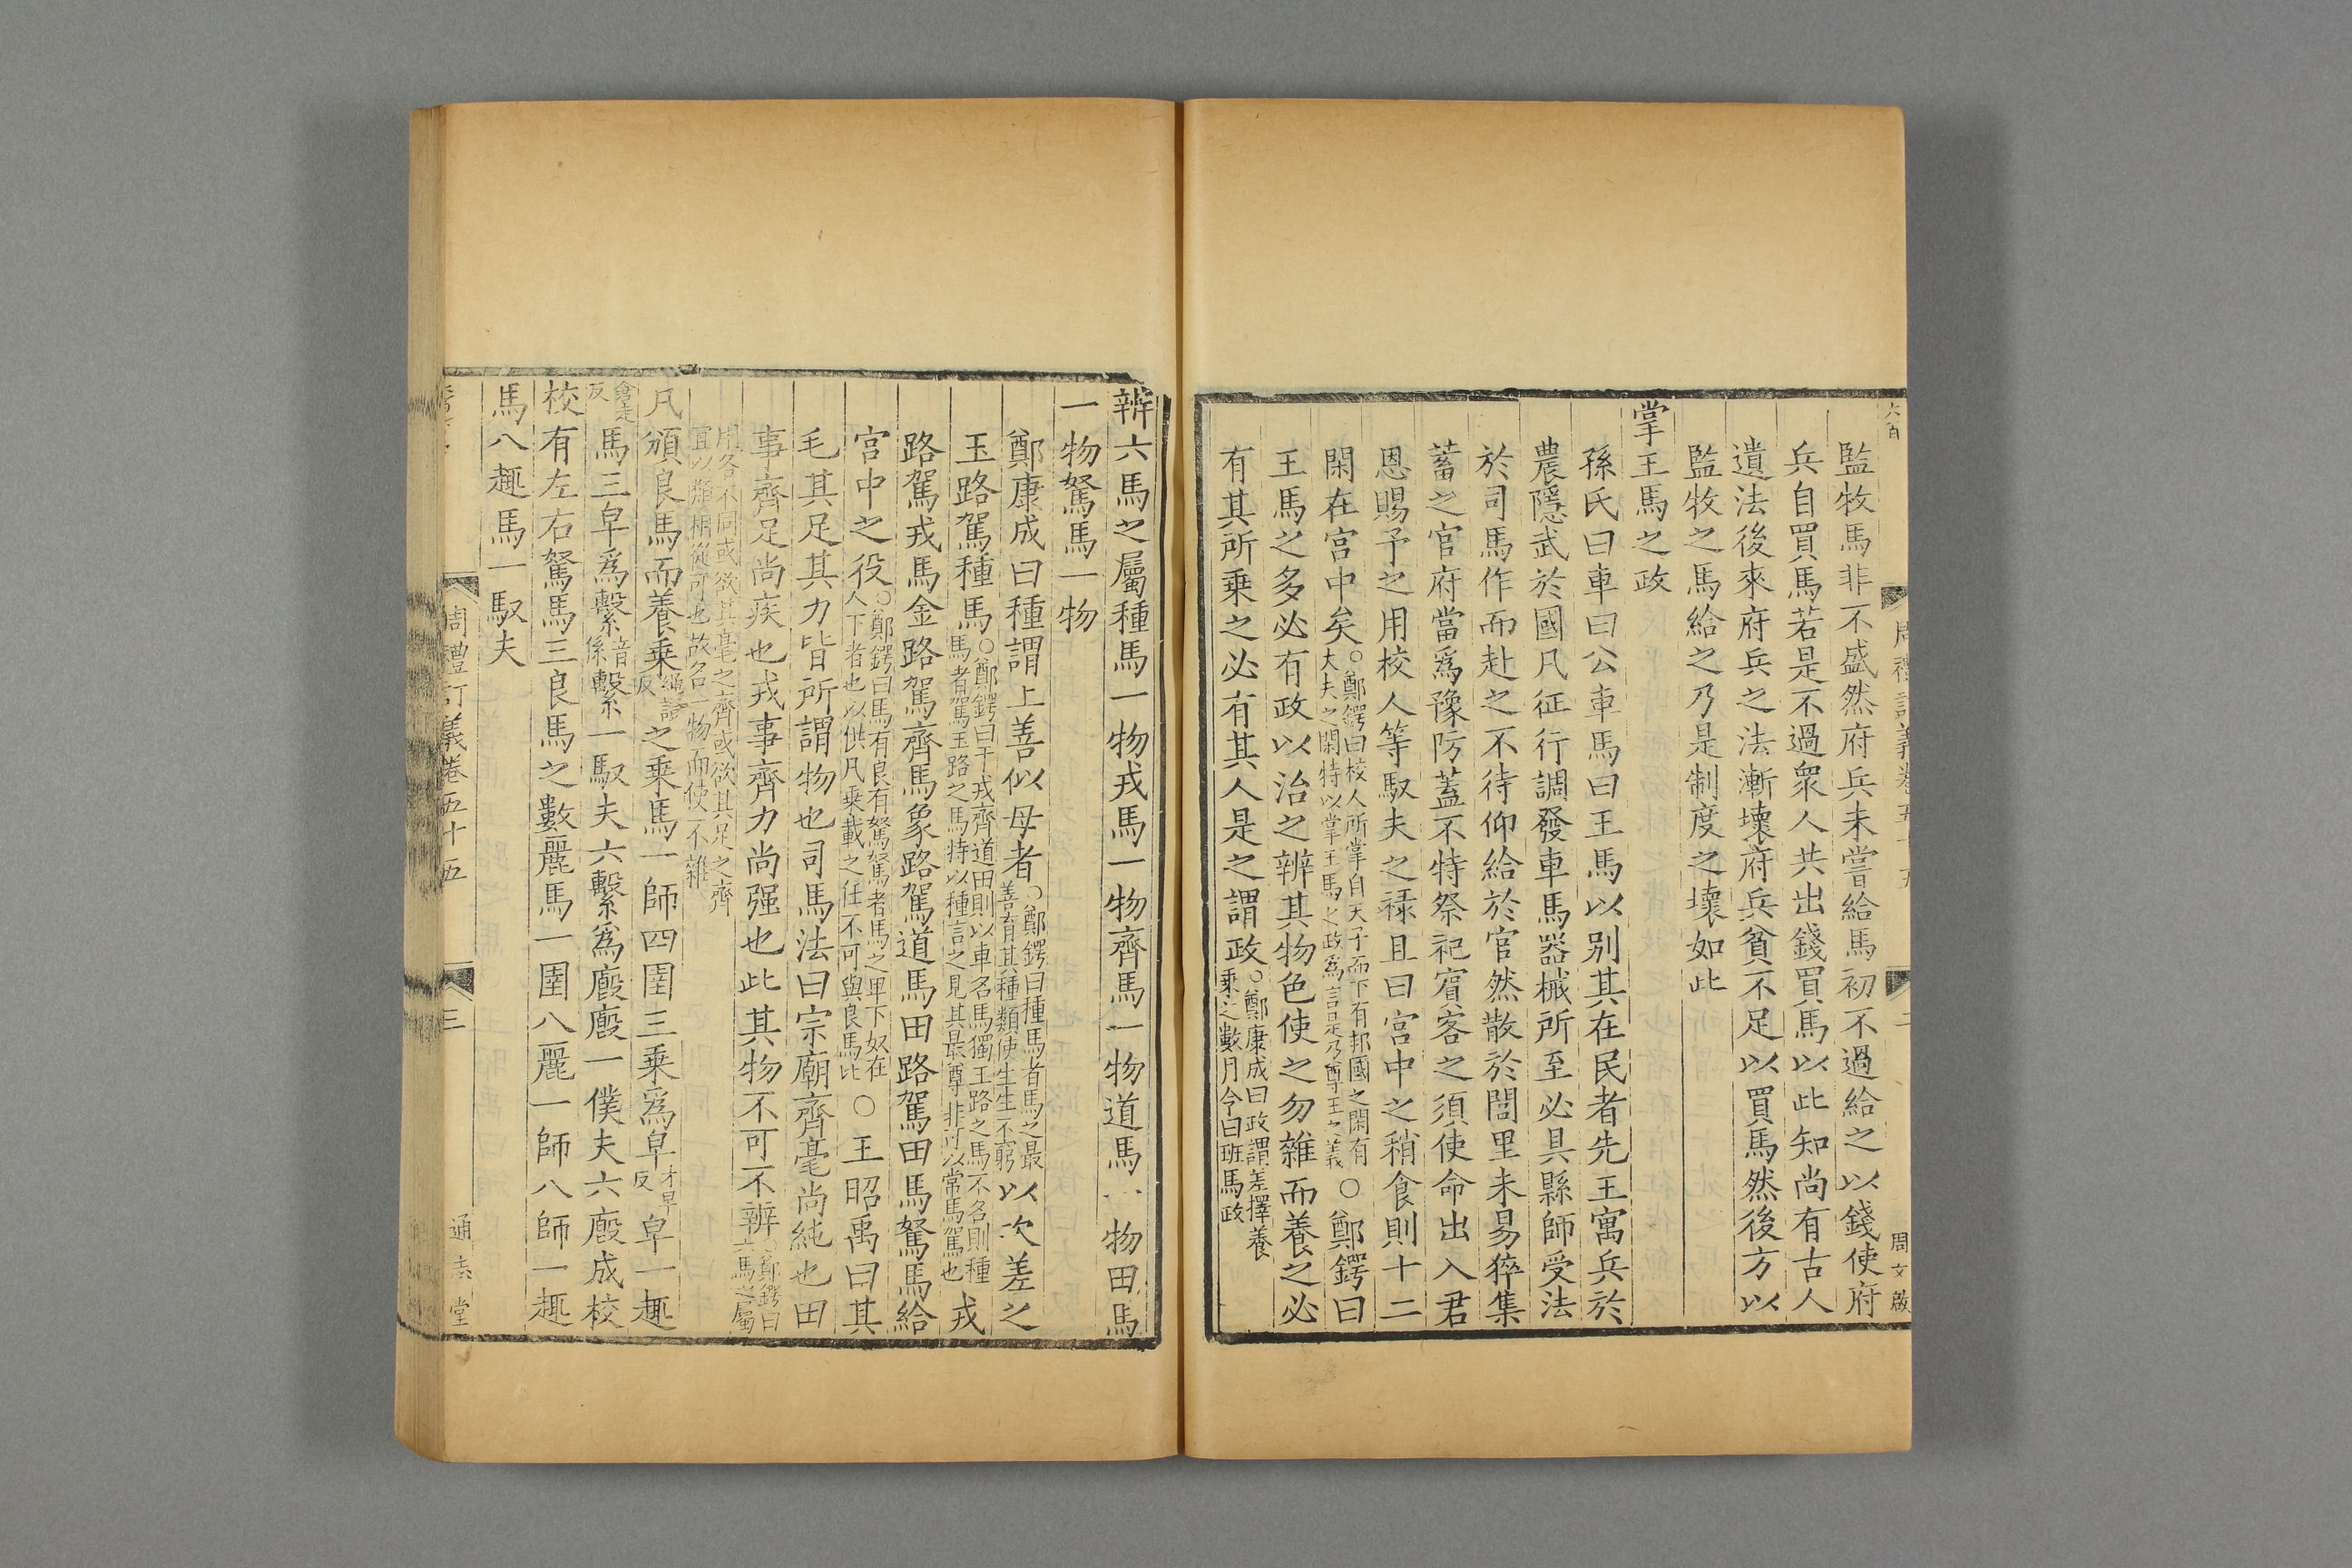 六百
周禮訂義卷五十五
二
周文啟
監牧馬非不盛然府兵未嘗給馬初不過給之以錢使府
兵自買馬若是不過衆人共出錢買馬以此知尚有古人
遺法後來府兵之法漸壞府兵貧不足以買馬然後方以
監牧之馬給之乃是制度之壞如此
掌王馬之政
孫氏曰車曰公車馬曰王馬以别其在民者先王寓兵於
農隱武於國凡征行調發車馬器械所至必具縣師受法
於司馬作而赴之不待仰給於官然散於閭里未易猝集
蓄之官府當爲豫防蓋不特祭祀賓客之須使命出入君
恩賜予之用校人等馭夫之禄且曰宫中之稍食則十二
閑在宫中矣○鄭鍔曰校人所掌自天子而下有邦國之閑有
大夫之閑特以掌王馬之政爲言是乃尊王之義○鄭鍔曰
王馬之多必有政以治之辨其物色使之勿雜而養之必
有其所乗之必有其人是之謂政○鄭康成曰政謂差擇養
乗之數月令曰班馬政
辨六馬之屬種馬一物戎馬一物齊馬一物道馬一物田馬
一物駑馬一物
鄭康成曰種謂上善似母者○鄭鍔曰種馬者馬之最
善育其種類使生生不窮以次差之
玉路駕種馬○鄭鍔曰于戎齊道田則以車名馬獨玉路之馬不名則種
馬者駕玉路之馬特以種言之見其最尊非可以常馬駕也戎
路駕戎馬金路駕齊馬象路駕道馬田路駕田馬駑馬給
宫中之役○鄭鍔曰馬有良有駑駑馬者馬之卑下如在
人下者也以供凡乗載之任不可與良馬比○王昭禹曰其
毛其足其力皆所謂物也司馬法曰宗廟齊毫尚純也田
事齊足尚疾也戎事齊力尚强也此其物不可不辨○鄭鍔曰
六馬之屬
用各不同或欲其毫之齊或欲其足之齊
宜以類相從可也故名一物而使不雜
凡頒良馬而養乗繩證
反之乗馬一師四圉三乗爲皁才早
反皁一趣
倉走
反馬三皁爲繫音
係繫一馭夫六繫爲廏廏一僕夫六廏成校
校有左右駑馬三良馬之數麗馬一圉八麗一師八師一趣
馬八趣馬一馭夫
周禮訂義卷五十五
三
通志堂